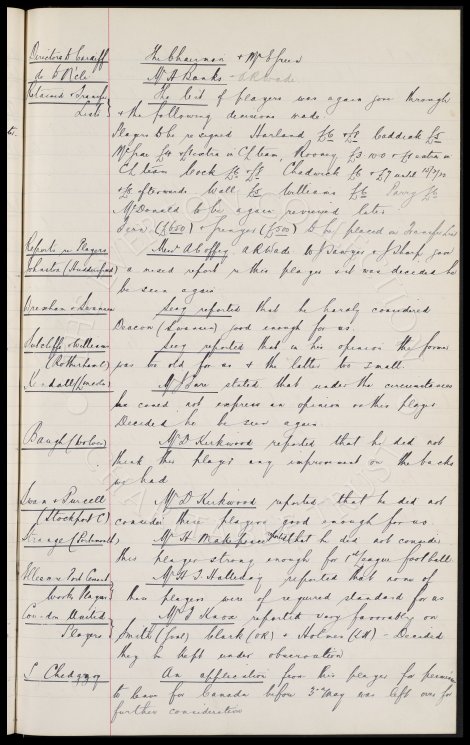 Directors to Cardiff The Chairman + Mr E Green
do to N'cle Mr A Banks - A R Wade
Retained + Transfer The list of players was again gone through
List + the following decisions made
Players to be re signed Harland £6 + £8 Caddick £5
McGrae £4 + £1 extra in C L team, Rooney £3 10 0 + £1 extra in
C L team Cock £6 + £8 Chadwick £6 + £7 until
+ £8 afterwards Wall £5 Williams £6 Parry £6
McDonald to be again reviewed later
(£650) + (£500) to be placed on Transfer List
Reports re Players Messrs A Coffey A R Wade + J Sharp gave
Johnston (Huddersfield) a mixed report re this player + it was decided he
be seen again
Wrexham v Swansea Secy reported that he hardly considered
Deacon (Swansea) good enough for us.
Sutcliffe + Williams Secy reported that in his opinion the former
(Rotherham) was too old for us + the latter too small.
Kendall (Lincoln) Mr J Fare stated that under the circumstances
he could not express an opinion on this player
Decided he be seen again
Baugh (Wolves) Mr D Kirkwood reported that he did not
think this player any improvement on the backs
we had
Swan + Purcell Mr D Kirkwood reported that he did not
(Stockport C) consider these players good enough for us.
Strange (Portsmouth) Mr H Makepeace stated that he did not consider
this player strong enough for 1st League football
Ellesmere Port Cement Mr H J Halleday reported that none of
Works Players these players were of required standard for us
Cowdon United Mr J Knox reported very favorably on
Players Smith (goal) Clark (OR) + Holmes (LH) - Decided
they be kept under observation
S Chedgzoy An application from this player for permission
to leave for Canada before 3rd May was left over for
further consideration